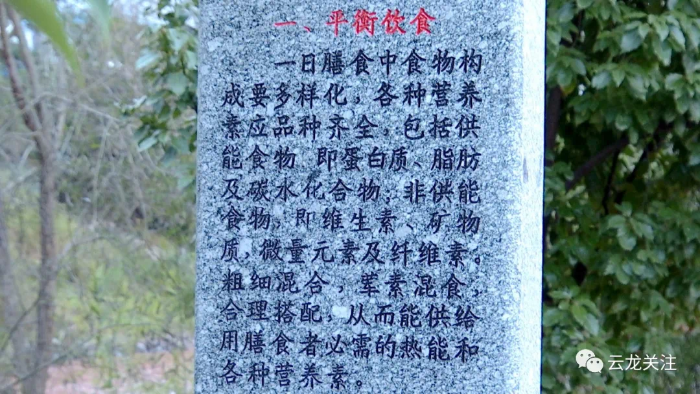 一、平衡饮食
一日膳食中食物构
成要多样化，各种营养
素应品种齐全，包括供
能食物 即蛋白质、脂肪
及碳水化合物；非供能
食物，即维生素、矿物
质，微量元素及纤维素。
粗细混合，荤素混食，
合理搭配，从而能供给
用膳食者必需的热能和
各种营养素。
云龙关注